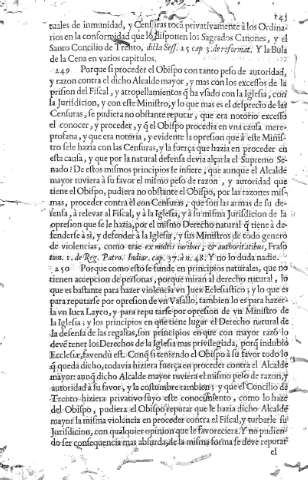 145
tuales de inmunidad, y Censuras tocà privativamente à los Ordina-
rios en la conformidad que lo disponen los Sagrados Canones, y el
Santo Concilio de Trento, dicta Sess. 25 cap. 3. de reformat. Y la Bula
de la Cena en varios capitulos.
249 Porque si proceder el Obispo con tanto peso de autoridad,
y razon contra el dicho Alcalde mayor, y mas con los excessos de la
prision del Fiscal, y atropellamientos q̃ ha vsado con la Iglesia, con
la Jurisdicion, y con este Ministro, y lo que mas es el desprecio de las
Censuras, se pudiera no obstante reputar, que era notorio excesso
el conocer, y proceder, y q̃ el Obispo procedia en vna causa mere-
profana, y que era notoria, y evidente la opresion que à este Minis-
tro se le hazia con las Censuras, y la fuerça que hazia en proceder en
esta causa, y que por la natural defensa devia alçarla el Supremo Se-
nado: De estos mismos principios se infiere, que aunque el Alcalde
mayor tuviera à su favor el mismo peso de razon, y autoridad que
tiene el Obispo, pudiera no obstante el Obispo, por las razones mis-
mas, proceder contra èl con Censuras, que son las armas de su de-
fensa, à relevar al Fiscal, y à la Iglesia, y à su misma Jurisdicion de la
opresion que se le hazia, por el mismo Derecho natural q̃ tiene à de-
fenderse à sì, y defender à la Iglesia, y sus Ministros de todo genero
de violencias, como trae ex multis iuribus, & authoritatibus, Fraso
tom. 1. de Reg. Patro. Indiar. cap. 37. à n. 48. Y no lo duda nadie.
250 Porque como esto se funde en principios naturales, que no
tienen accepcion de personas, porque miran al derecho natural, lo
que es bastante para hazer violencia vn Juez Eclesiastico, y lo que es
para reputarse por opresion de vn Vasallo, tambien lo es para hazer-
la vn Juez Layco, y para reputarse por opresion de vn Ministro de
la Iglesia: y los principios en que tiene lugar el Derecho natural de
la defensa de las regalias, son principios en que con mayor razõ lo
deve tener los Derechos de la Iglesia mas privilegiada, porq̃ in dubio
Ecclesiæ, favendũ est. Conq̃ si teniendo el Obispo à su favor todo lo
q̃ queda dicho, todavia hiziera fuerça en proceder contra el Alcalde
mayor: aunq̃ dicho Alcalde mayor tuviera el mismo peso de razon, y
autoridad à su favor, y la costumbre tambien; y que el Concilio de
Trento hiziera privativo suyo este conocimiento, como lo haze
del Obispo, pudiera el Obispo reputar que le haria dicho Alcalde
mayor la misma violencia en proceder contra el Fiscal, y turbarle su
Jurisdicion, con qualquier opinion que le favoreciera. Y no pudien-
do ser consequencia mas absurda, de la misma forma se deve reputar
el